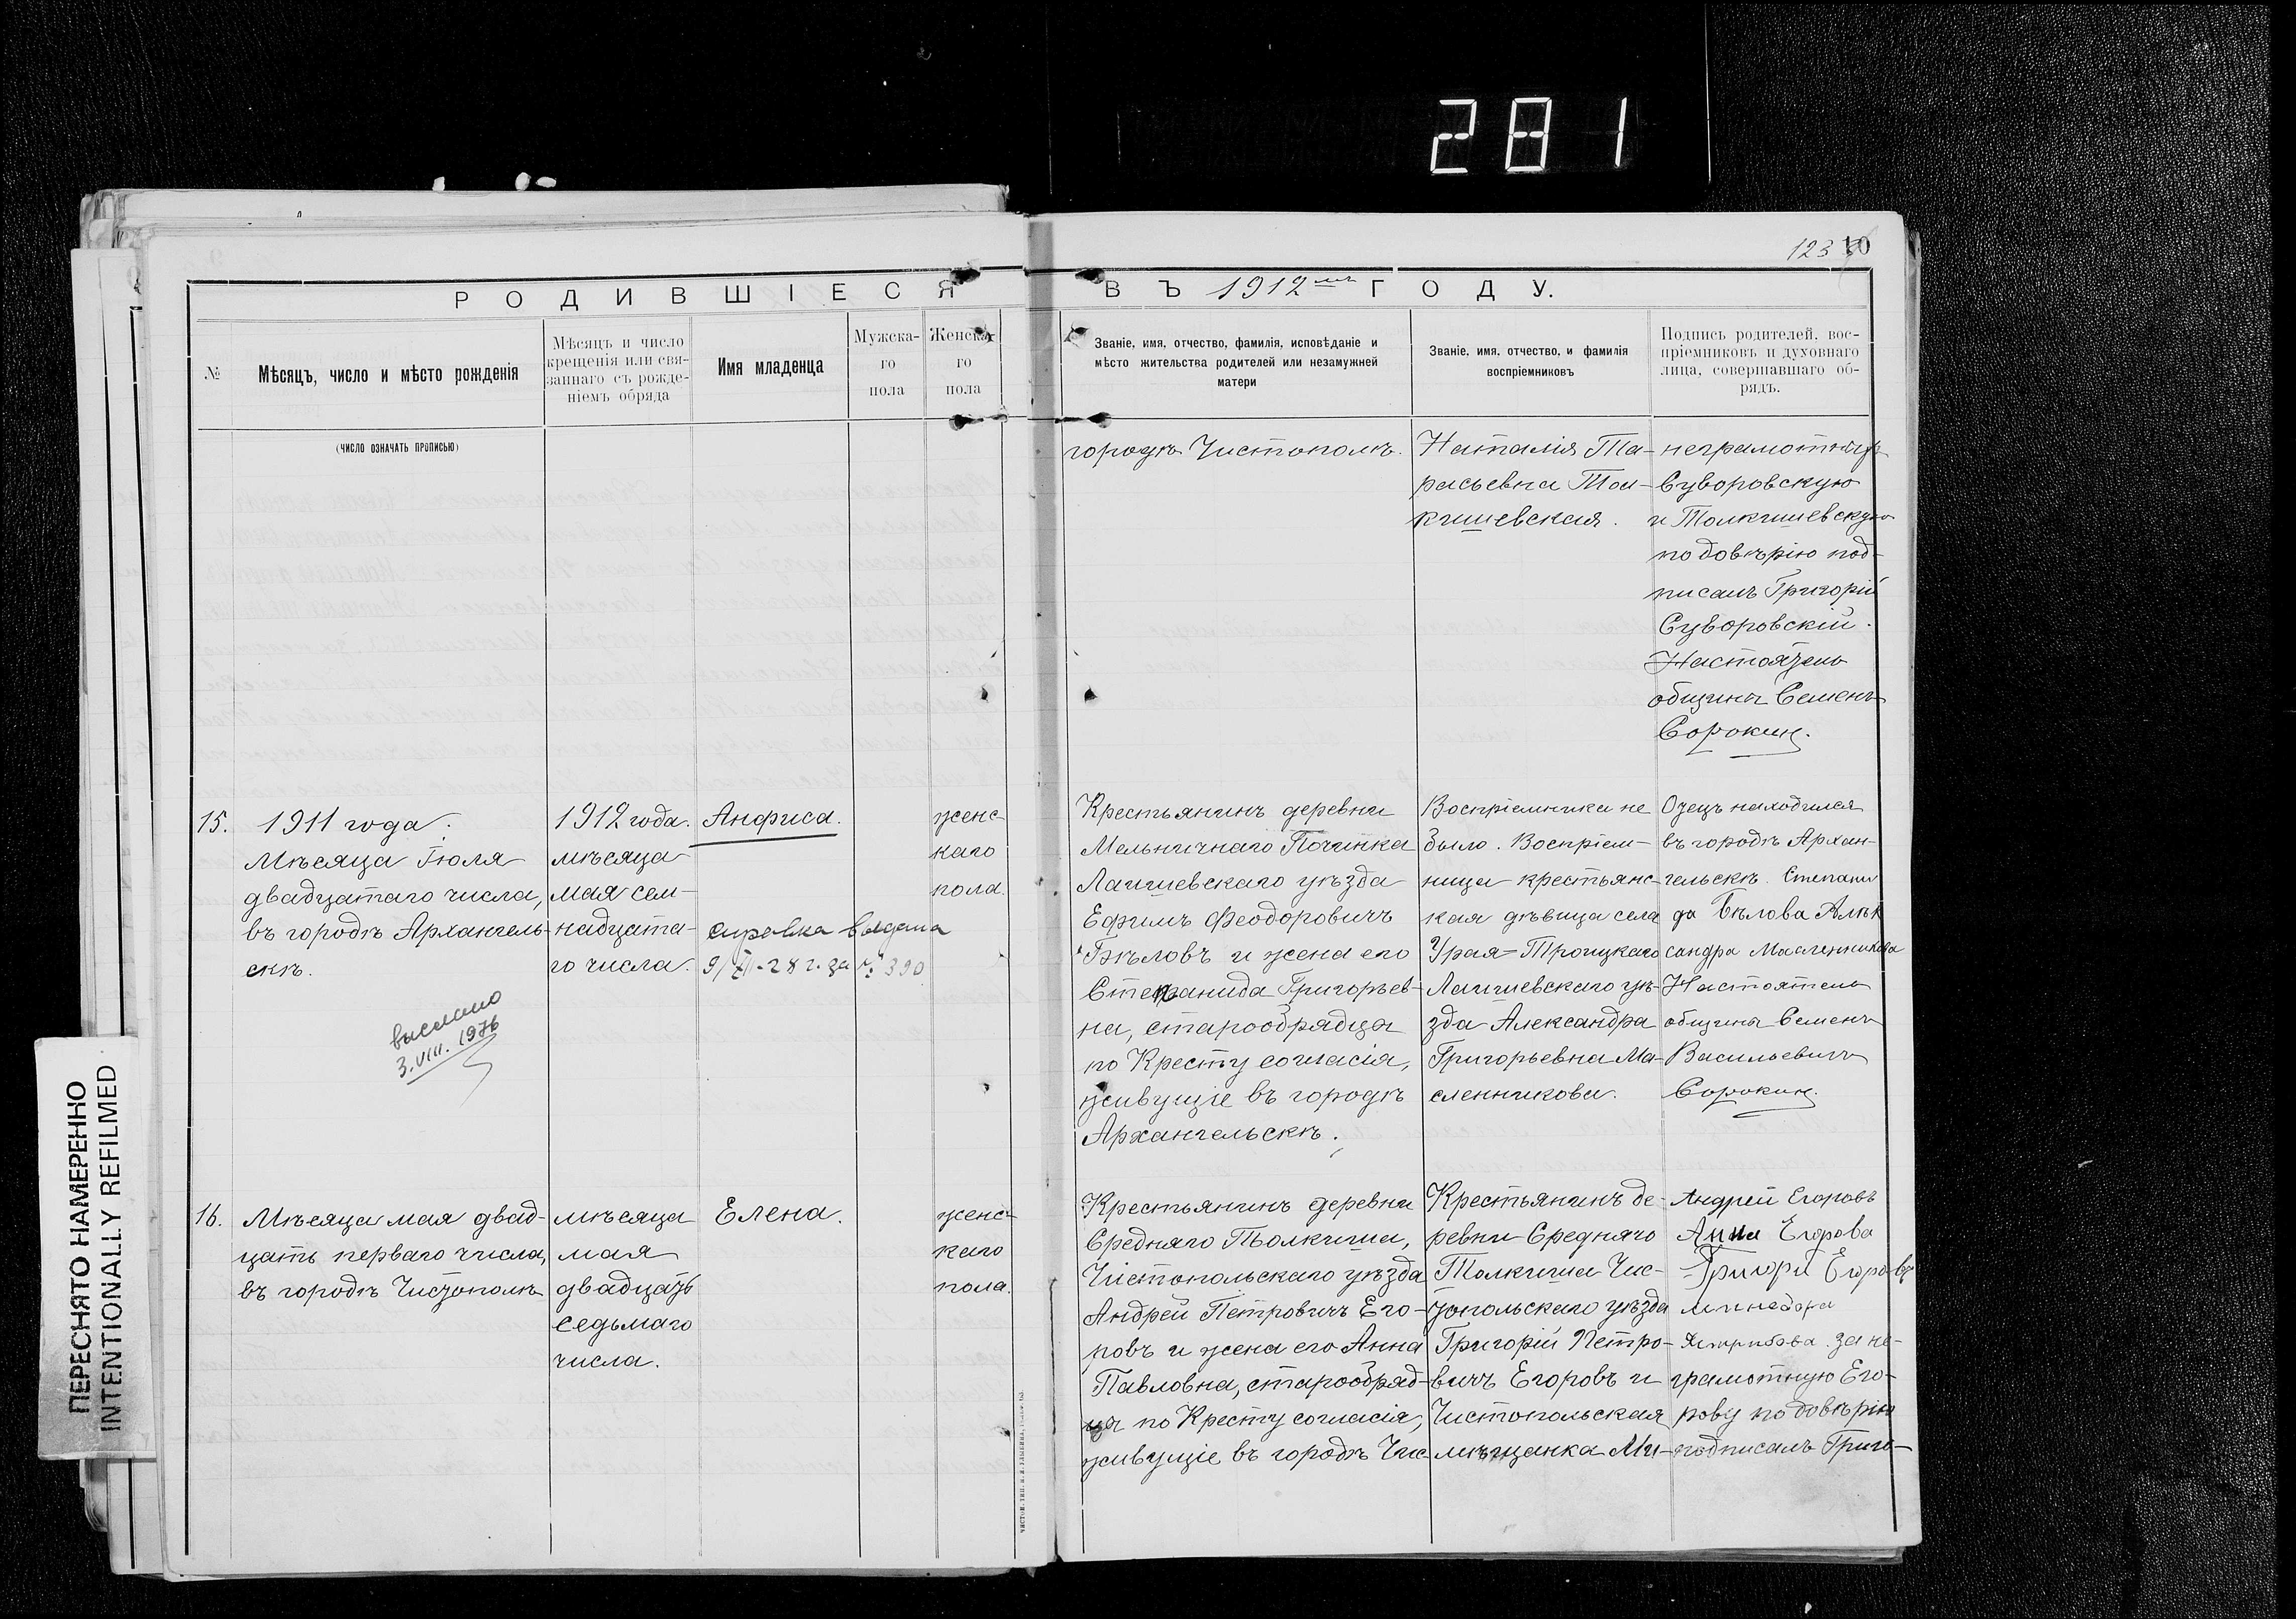 281
123
10
РОДИВШІЕСЯ
ВЪ 1912мъ ГОДУ.
№
Мѣсяцъ, число и мѣсто рожденія
Мѣсяцъ и число
крещенія или свя-
заннаго съ рожде-
ніемъ обряда
Имя младенца
Мужска-
го
пола
Женска-
го
пола
Званіе, имя, отчество, фамилія, исповѣданіе и
мѣсто жительства родителей или незамужней
матери
Званіе, имя, отчество, и фамилія
воспріемниковъ
Подпись родителей, вос-
пріемниковъ и духовнаго
лица, совершавшаго об-
рядъ.
(число означать прописью)
городѣ Чистополѣ.
Наталія Та-
расьевна Тол-
кишевская.
неграмотную
Суворовскую
и Толкишевскую
по довѣрію под-
писалъ Григорій
Суворовскій.
Настоятель
общины Семенъ
Сорокин.
15.
1911 года.
Мѣсяца Іюля
двадцатаго числа,
въ городѣ Архангель-
скѣ.
выслано
3.VIII.1976
1912 года.
мѣсяца
мая сем-
надцата-
го числа.
Анфиса.
справка выдана
9/XI-28 г. за № 390
женс-
каго
пола.
Крестьянинъ деревни
Мельничнаго Починка
Лаишевскаго уѣзда
Ефимъ Феодоровичъ
Бѣловъ и жена его
Степанида Григорьев-
на, старообрядцы
по Кресту согласія,
живущіе въ городѣ
Архангельскѣ.
Воспріемника не
было. Воспріем-
ница крестьянс-
кая дѣвица села
Урая-Троицкаго
Лаишевскаго уѣ-
зда Александра
Григорьевна Ма-
сленникова.
Отецъ находился
въ городѣ Архан-
гельскѣ. Степани
да Бѣлова Алек
сандра Масленникова
Настоятель
общины Семенъ
Васильевичъ
Сорокин.
16.
Мѣсяца мая двад-
цать перваго числа,
въ городѣ Чистополѣ
мѣсяца
мая
двадцать
седьмаго
числа.
Елена.
женс-
каго
пола.
Крестьянинъ деревни
Средняго Толкиша,
Чистопольскаго уѣзда
Андрей Петровичъ Его-
ровъ и жена его Анна
Павловна, старообряд-
цы по Кресту согласія,
живущіе въ городѣ Чис-
Крестьянинъ де-
ревни Средняго
Толкиша Чис-
топольскаго уѣзда
Григорій Петро-
вичъ Егоровъ и
Чистопольская
мѣщанка Ми-
Андрей Егоровъ
Анна Егорова
Григори Егоровъ
минадора
за не-
грамотную Его-
рову по довѣрію
подписалъ Григо-
ПЕРЕСНЯТО НАМЕРЕННО
INTENTIONALLY REFILMED